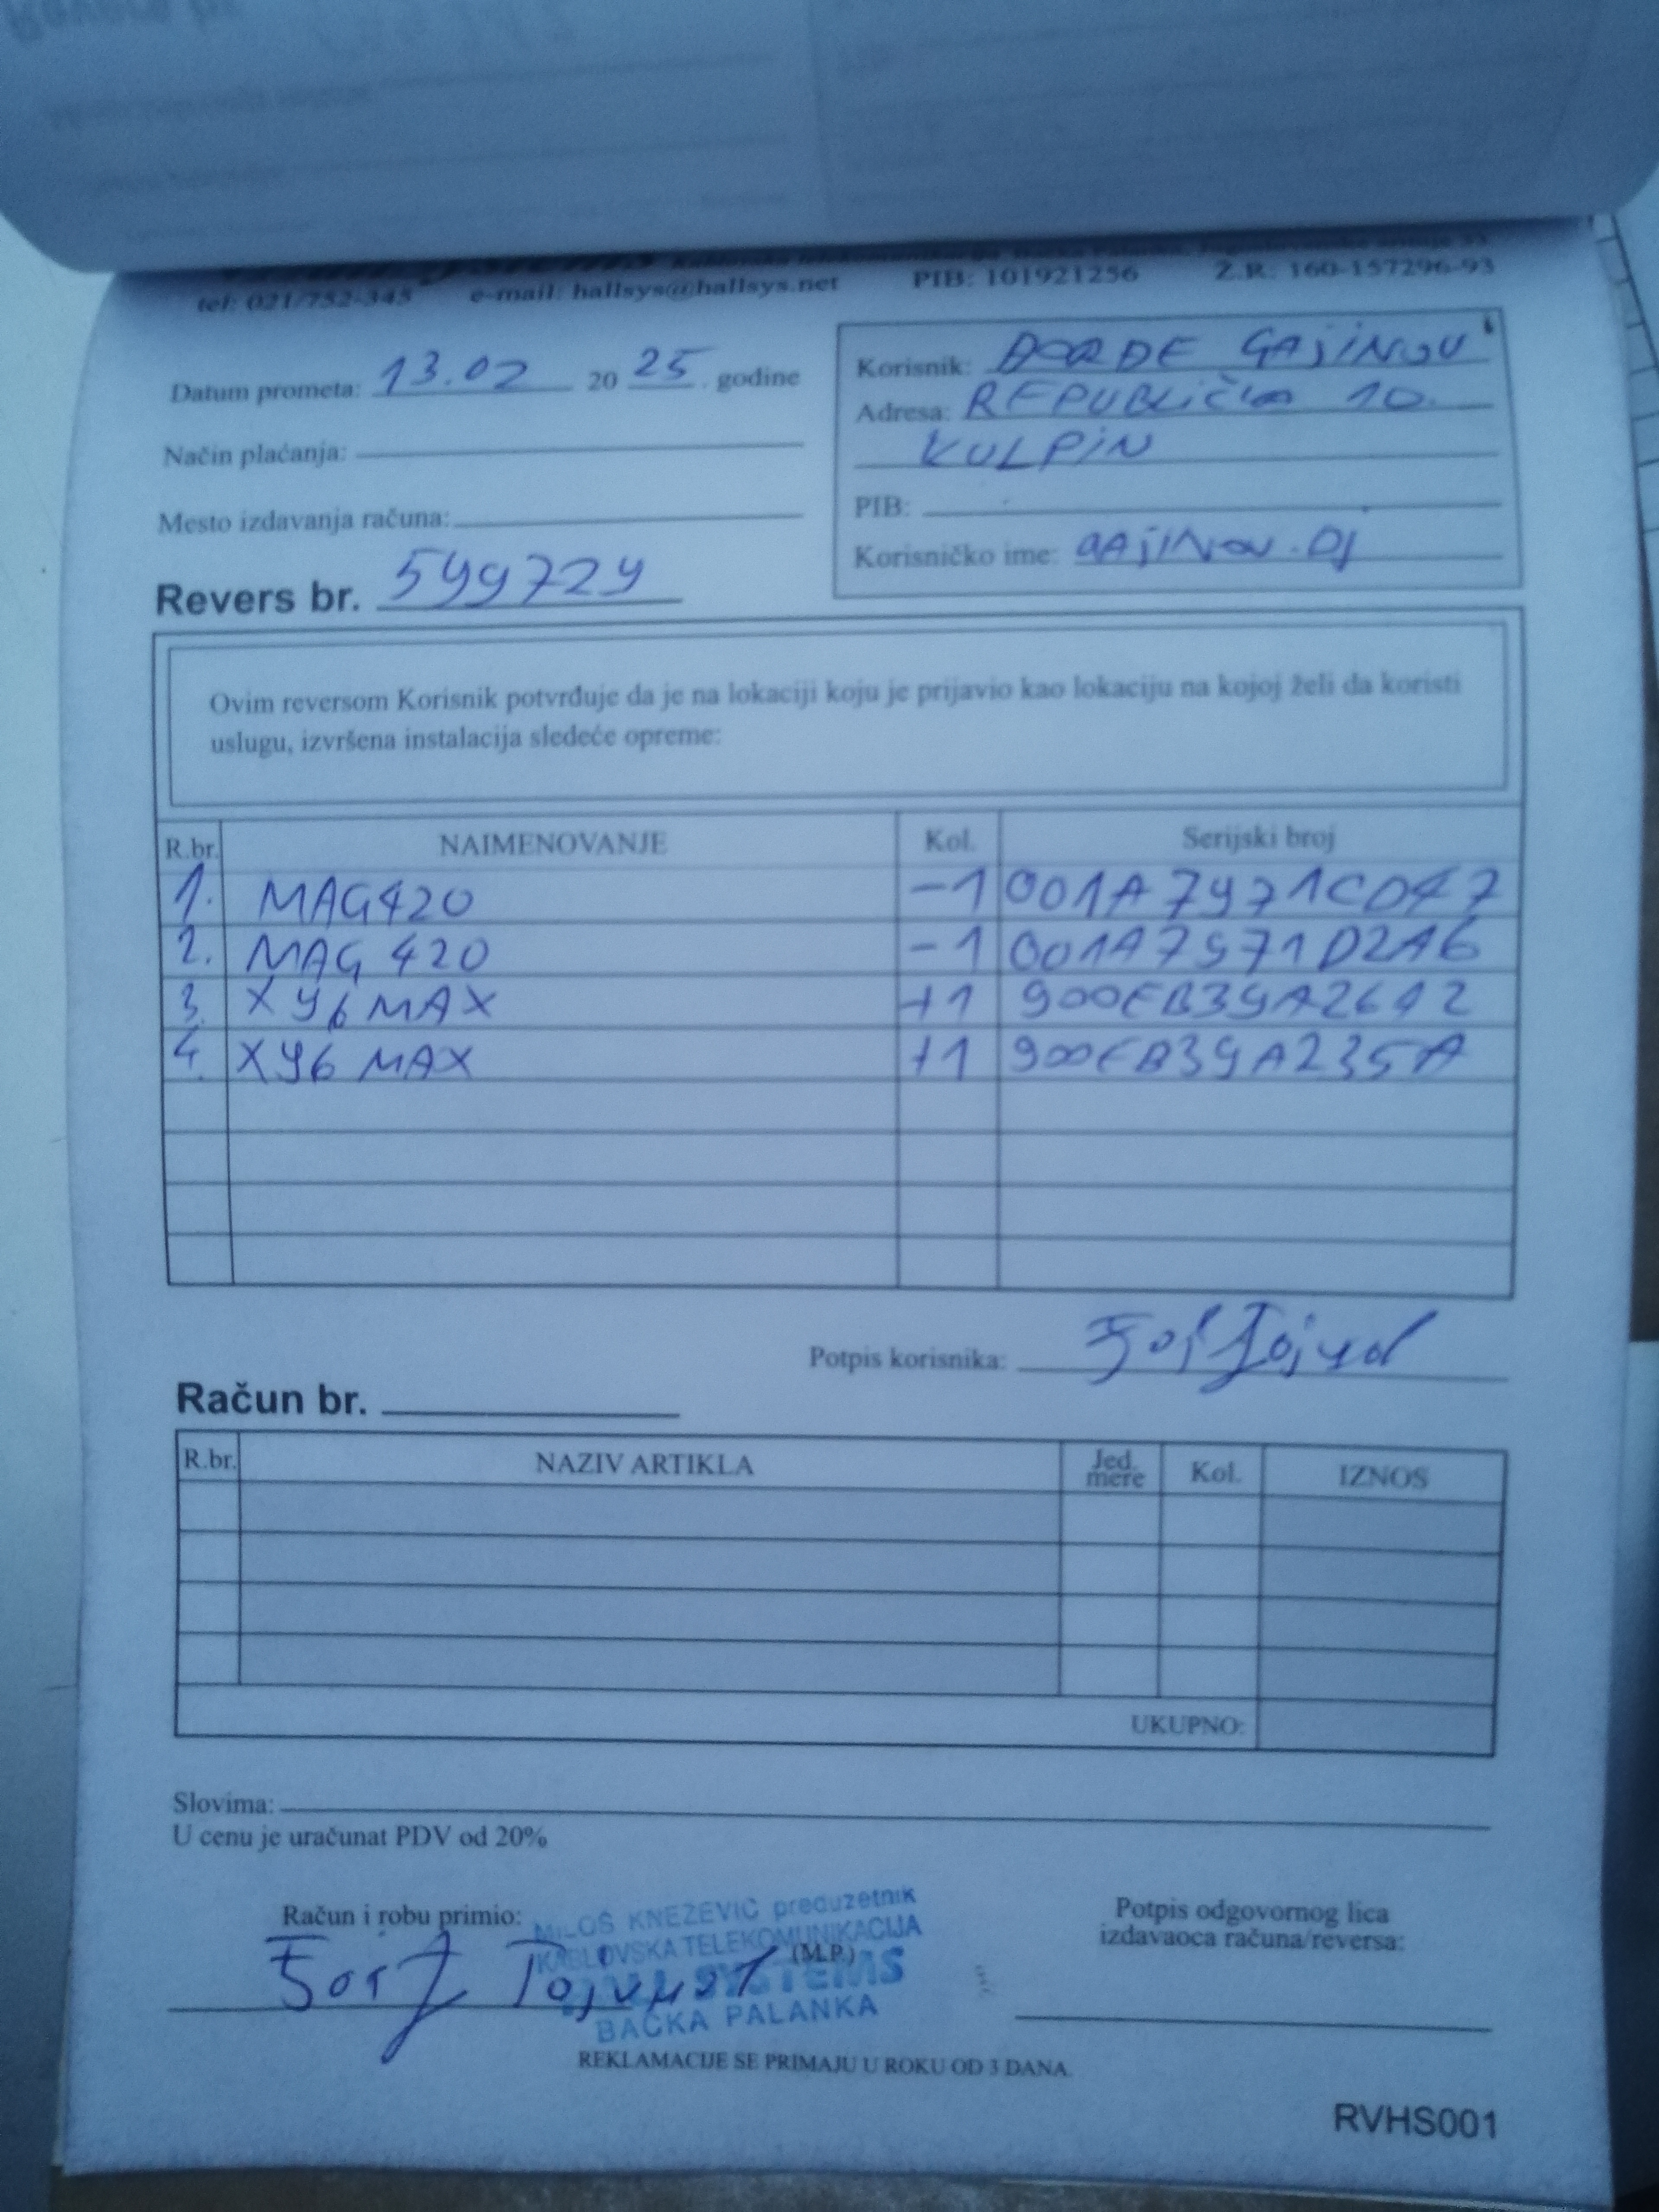 tel: 021/752-345 e-mail: hallsys@hallsys.net PIB: 101921256 Ž.R.: 160-157296-93
Datum prometa: 13.02 20 25. godine
Način plaćanja:
Mesto izdavanja računa:
Korisnik: ĐORĐE GAJINOV
Adresa: REPUBLIČKA 10.
KULPIN
PIB:
Korisničko ime: GAJINOV.DJ
Revers br. 599729
Ovim reversom Korisnik potvrđuje da je na lokaciji koju je prijavio kao lokaciju na kojoj želi da koristi
uslugu, izvršena instalacija sledeće opreme:
R.br. NAIMENOVANJE Kol. Serijski broj
1. MAG420 -1 001A7971CD47
2. MAG 420 -1 001A7971D2A6
3. X96 MAX +1 900EB39A2612
4. X96 MAX +1 900EB39A235A
Potpis korisnika:
Račun br.
R.br. NAZIV ARTIKLA Jed. mere Kol. IZNOS
UKUPNO:
Slovima:
U cenu je uračunat PDV od 20%
Račun i robu primio:
MILOŠ KNEŽEVIĆ preduzetnik
KABLOVSKA TELEKOMUNIKACIJA
(M.P.)
HALL SYSTEMS
BAČKA PALANKA
Potpis odgovornog lica
izdavaoca računa/reversa:
REKLAMACIJE SE PRIMAJU U ROKU OD 3 DANA.
RVHS001